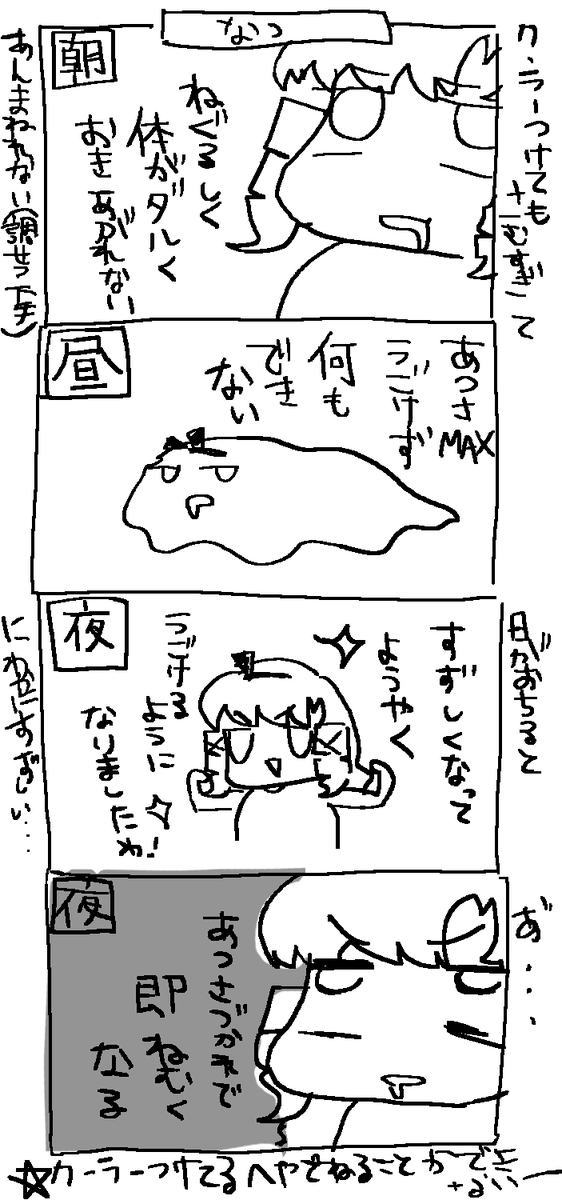 なつ
クーラーつけても
さむすぎて
朝
ねぐるしく
体がダルく
おきあがれない
あんまねれない(調せつ下手)
昼
あつさMAX
うごけず
何も
でき
ない
日がおちると
夜
すずしくなって
ようやく
うごける
ように
なりましたわ!
にわかにすずしい...
あ゛...
夜
あつさづかれで
即ねむく
なる
☆クーラーつけてるへやでねることができ
ないー